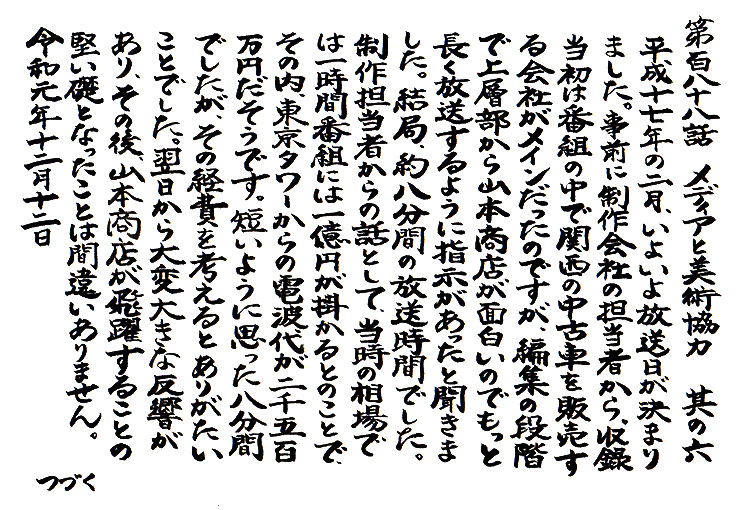 第百八十八話　メディアと美術協力　其の六
平成十七年の二月、いよいよ放送日が決まり
ました。事前に制作会社の担当者から、収録
当初は番組の中で関西の中古車を販売す
る会社がメインだったのですが、編集の段階
で上層部から山本商店が面白いのでもっと
長く放送するように指示があったと聞きま
した。結局、約八分間の放送時間でした。
制作担当者からの話として、当時の相場で
は一時間番組には一億円が掛かるとのことで、
その内、東京タワーからの電波代が二千五百
万円だそうです。短いように思った八分間
でしたが、その経費を考えるとありがたい
ことでした。翌日から大変大きな反響が
あり、その後、山本商店が飛躍することの
堅い礎となったことは間違いありません。
令和元年十二月十二日
つづく